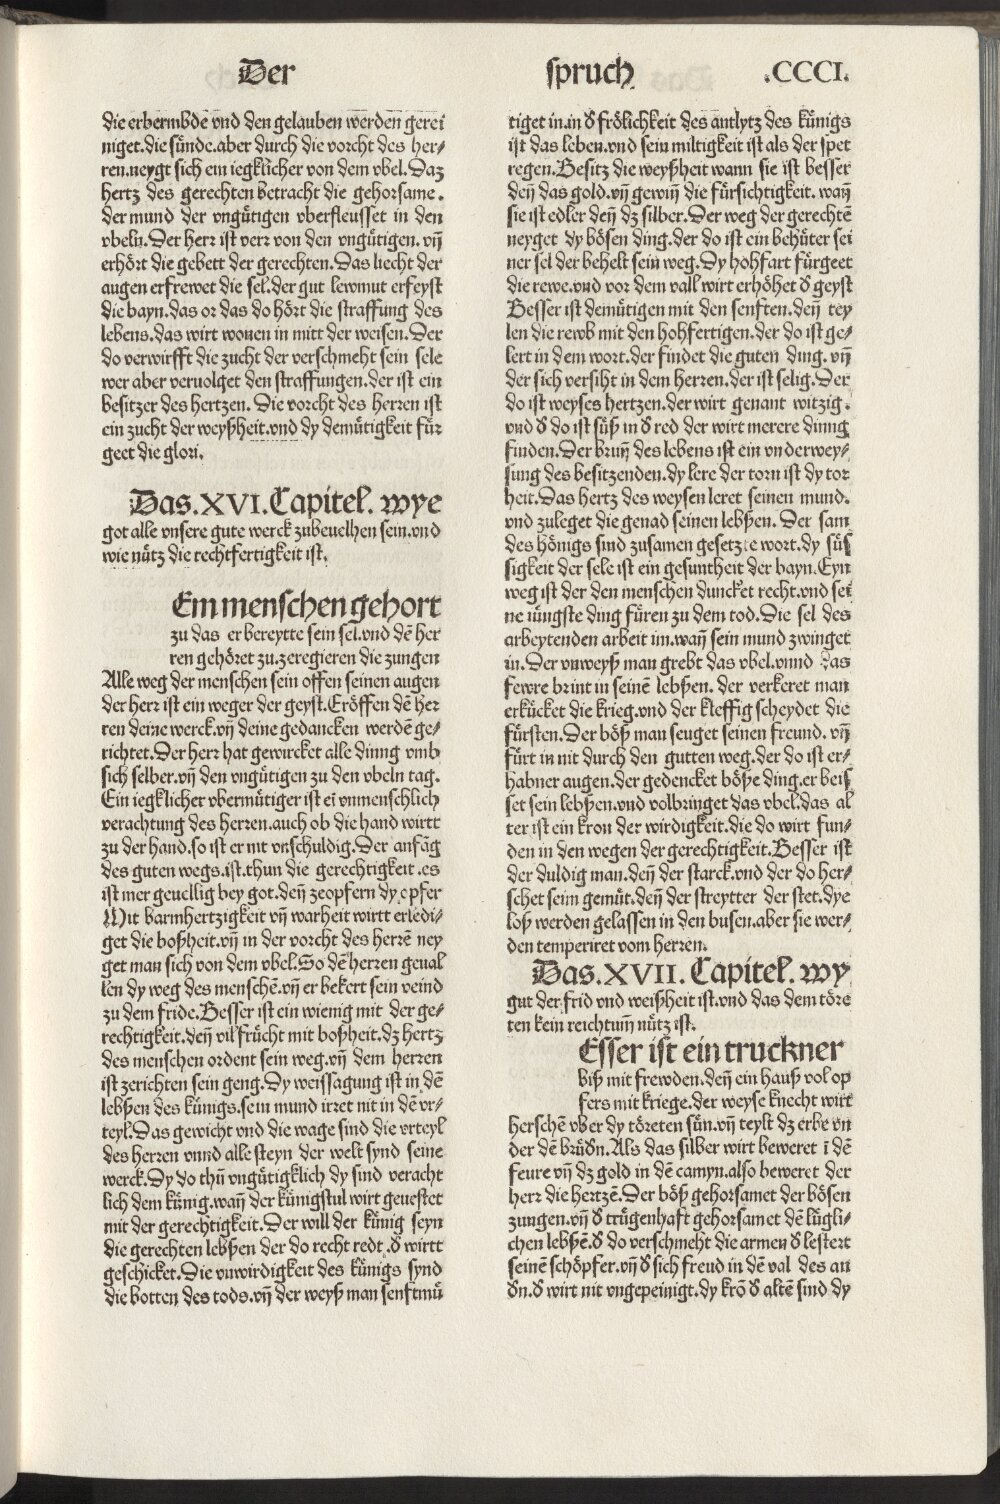 Der spruch .CCCI.
die erbermbde vnd den gelauben werden gerei
niget.die sünde.aber durch die vorcht des her⸗
ren.neygt sich ein iegklicher von dem vbel.Daz
hertz des gerechten betracht die gehorsame.
der mund der vngütigen vberfleusset in den
vbeln.Der herr ist verr von den vngütigen.vñ
erhört die gebett der gerechten.Das liecht der
augen erfrewet die sel.der gut lewmut erfeyst
die bayn.das or das do hört die straffung des
lebens.das wirt wonen in mitt der weisen.Der
do verwirfft die zucht der verschmeht sein sele
wer aber veruolget den straffungen.der ist ein
besitzer des hertzen. Die vorcht des herren ist
ein zucht der weyßheit.vnd dy demütigkeit für
geet die glori.
Das.XVI.Capitel. wye
got alle vnsere gute werck zubeuelhen sein.vnd
wie nütz die rechtfertigkeit ist.
Em menschen gehort
zu das er bereytte sein sel.vnd dē her
ren gehöret zu.zeregieren die zungen
Alle weg der menschen sein offen seinen augen
der herr ist ein weger der geyst.Eröffen dē her
ren deine werck.vñ deine gedancken werdē ge⸗
richtet.Der herr hat gewircket alle dinng vmb
sich selber.vñ den vngütigen zu den vbeln tag.
Ein iegklicher vbermütiger ist ei vnmenschlich
verachtung des herren.auch ob die hand wirtt
zu der hand.so ist er nit vnschuldig.Der anfāg
des guten wegs.ist.thun die gerechtigkeit.es
ist mer geuellig bey got.deñ zeopfern dy opfer
Mit barmhertzigkeit vñ warheit wirtt erledi⸗
get die boßheit.vñ in der vorcht des herrē ney
get man sich von dem vbel.So dē herren geual
len dy weg des menschē.vñ er bekert sein veind
zu dem fride.Besser ist ein wienig mit der ge⸗
rechtigkeit.deñ vil frücht mit boßheit.dz hertz
des menschen ordent sein weg.vñ dem herren
ist zerichten sein geng.Dy weissagung ist in dē
lebßen des künigs.sein mund irret nit in dē vr⸗
teyl.Das gewicht vnd die wage sind die vrteyl
des herren vnnd alle steyn der welt synd seine
werck.Dy do thū vngütigklich dy sind veracht
lich dem künig.wañ der künigstul wirt geuestet
mit der gerechtigkeit.Der will der künig seyn
die gerechten lebßen der do recht redt.d̕ wirtt
geschicket.Die vnwirdigkeit des künigs synd
die botten des tods.vñ der weyß man senftmü
tiget in.in d̕ frölichkeit des antlytz des künigs
ist das leben.vnd sein miltigkeit ist als der spet
regen.Besitz die weyßheit wann sie ist besser
deñ das gold.vñ gewiñ die fürsichtigkeit. wañ
sie ist edler deñ dz silber.Der weg der gerechtē
neyget dy bösen ding.der do ist ein behüter sei
ner sel der behelt sein weg.Dy hohfart fürgeet
die rewe.vnd vor dem vall wirt erhöhet d̕ geyst
Besser ist demütigen mit den senften.deñ tey
len die rewb mit den hohfertigen.der do ist ge⸗
lert in dem wort.der findet die guten ding.vñ
der sich versiht in dem herren.der ist selig.Der
do ist weyses hertzen.der wirt genant witzig.
vnd d̕ do ist süß in d̕ red der wirt merere dinng
finden.Der bruñ des lebens ist ein vnderwey⸗
sung des besitzenden.dy lere der torn ist dy tor
heit.Das hertz des weysen leret seinen mund.
vnd zuleget die genad seinen lebßen. Der sam
des hönigs sind zusamen gesetzte wort.dy süs
sigkeit der sele ist ein gesuntheit der bayn.Eyn
weg ist der den menschen duncket recht.vnd sei
ne iüngste ding füren zu dem tod.Die sel des
arbeytenden arbeit im.wañ sein mund zwinget
in.Der vnweyß man grebt das vbel.vnnd das
fewre brint in seinē lebßen. der verkeret man
erkücket die krieg.vnd der kleffig scheydet die
fürsten.Der böß man seuget seinen freund. vñ
fürt in nit durch den gutten weg.der do ist er⸗
habner augen.der gedencket böße ding.er beis
set sein lebßen.vnd volbringet das vbel.das al
ter ist ein kron der wirdigkeit.die do wirt fun⸗
den in den wegen der gerechtigkeit.Besser ist
der duldig man.deñ der starck.vnd der do her⸗
schet seim gemüt.deñ der streytter der stet.dye
loß werden gelassen in den busen.aber sie wer⸗
den temperiret vom herren.
Das.XVII.Capitel. wy
gut der frid vnd weißheit ist.vnd das dem töre
ten kein reichtuṁ nütz ist.
Esser ist ein truckner
biß mit frewden.deñ ein hauß vol op
fers mit kriege.der weyse knecht wirt
herschē vber dy töreten sün.vñ teylt dz erbe vn
der dē brüd̕n.Als das silber wirt beweret ī dē
feure vñ dz gold in dē camyn.also beweret der
herr die hertzē.Der böß gehorsamet der bösen
zungen.vñ d̕ trügenhaft gehorsamet dē lügli⸗
chen lebßē.d̕ do verschmeht die armen d̕ lestert
seinē schöpfer.vñ d̕ sich freud in dē val des an
d̕n.d̕ wirt nit vngepeinigt.dy krō d̕ altē sind dy